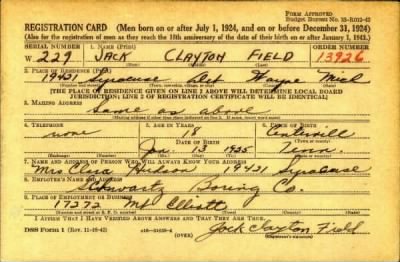 FORM APPROVED
Budget Bureau No. 33-R012-42
REGISTRATION CARD (Men born on or after July 1, 1924, and on or before December 31, 1924)
(Also for the registration of men as they reach the 18th anniversary of the date of their birth on or after January 1, 1943.)
SERIAL NUMBER 1. NAME (Print) ORDER NUMBER
W 229 JACK CLAYTON FIELD 13926
2. PLACE OF RESIDENCE (Print)
19431 Syracuse Det Wayne Mich
[THE PLACE OF RESIDENCE GIVEN ON LINE 2 ABOVE WILL DETERMINE LOCAL BOARD
JURISDICTION; LINE 2 OF REGISTRATION CERTIFICATE WILL BE IDENTICAL]
3. MAILING ADDRESS
Same as above
4. TELEPHONE 5. AGE IN YEARS 6. PLACE OF BIRTH
none 18 Centerville
DATE OF BIRTH
Jan. 13 1925 Tenn.
7. NAME AND ADDRESS OF PERSON WHO WILL ALWAYS KNOW YOUR ADDRESS
Mrs Clara Hudson 19431 Syracuse
8. EMPLOYER'S NAME AND ADDRESS
Schwartz Boring Co.
9. PLACE OF EMPLOYMENT OR BUSINESS
17272 Mt Elliott
I AFFIRM THAT I HAVE VERIFIED ABOVE ANSWERS AND THAT THEY ARE TRUE.
DSS Form 1 (Rev. 11-16-42) (OVER) Jack Clayton Field
(Registrant's signature)